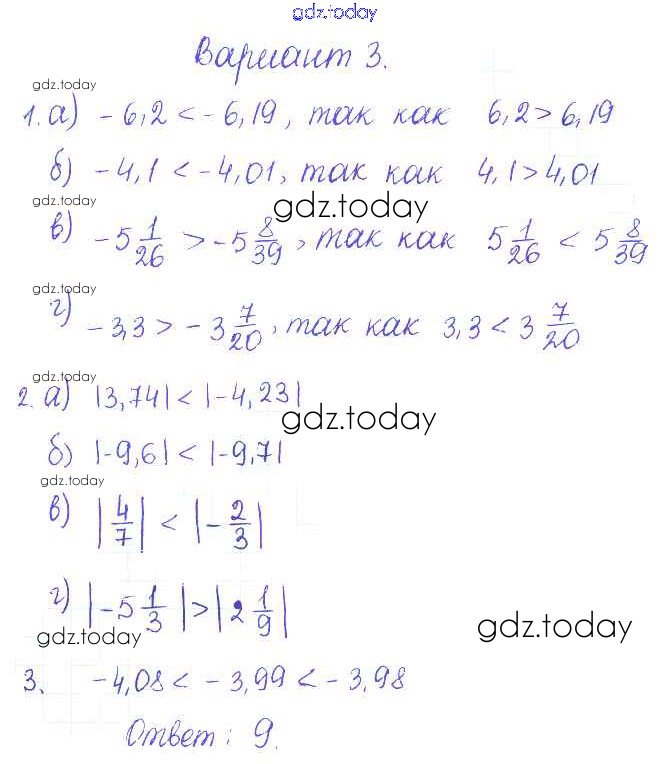 gdz.today
Вариант 3.
gdz.today
1. а) -6,2 < -6,19, так как 6,2 > 6,19
б) -4,1 < -4,01, так как 4,1 > 4,01
gdz.today
gdz.today
в) -5 1/26 > -5 8/39, так как 5 1/26 < 5 8/39
gdz.today
г) -3,3 > -3 7/20, так как 3,3 < 3 7/20
gdz.today
2. а) |3,74| < |-4,23|
gdz.today
б) |-9,6| < |-9,7|
gdz.today
в) |4/7| < |-2/3|
г) |-5 1/3| > |2 1/9|
gdz.today
gdz.today
3. -4,08 < -3,99 < -3,98
Ответ: 9.